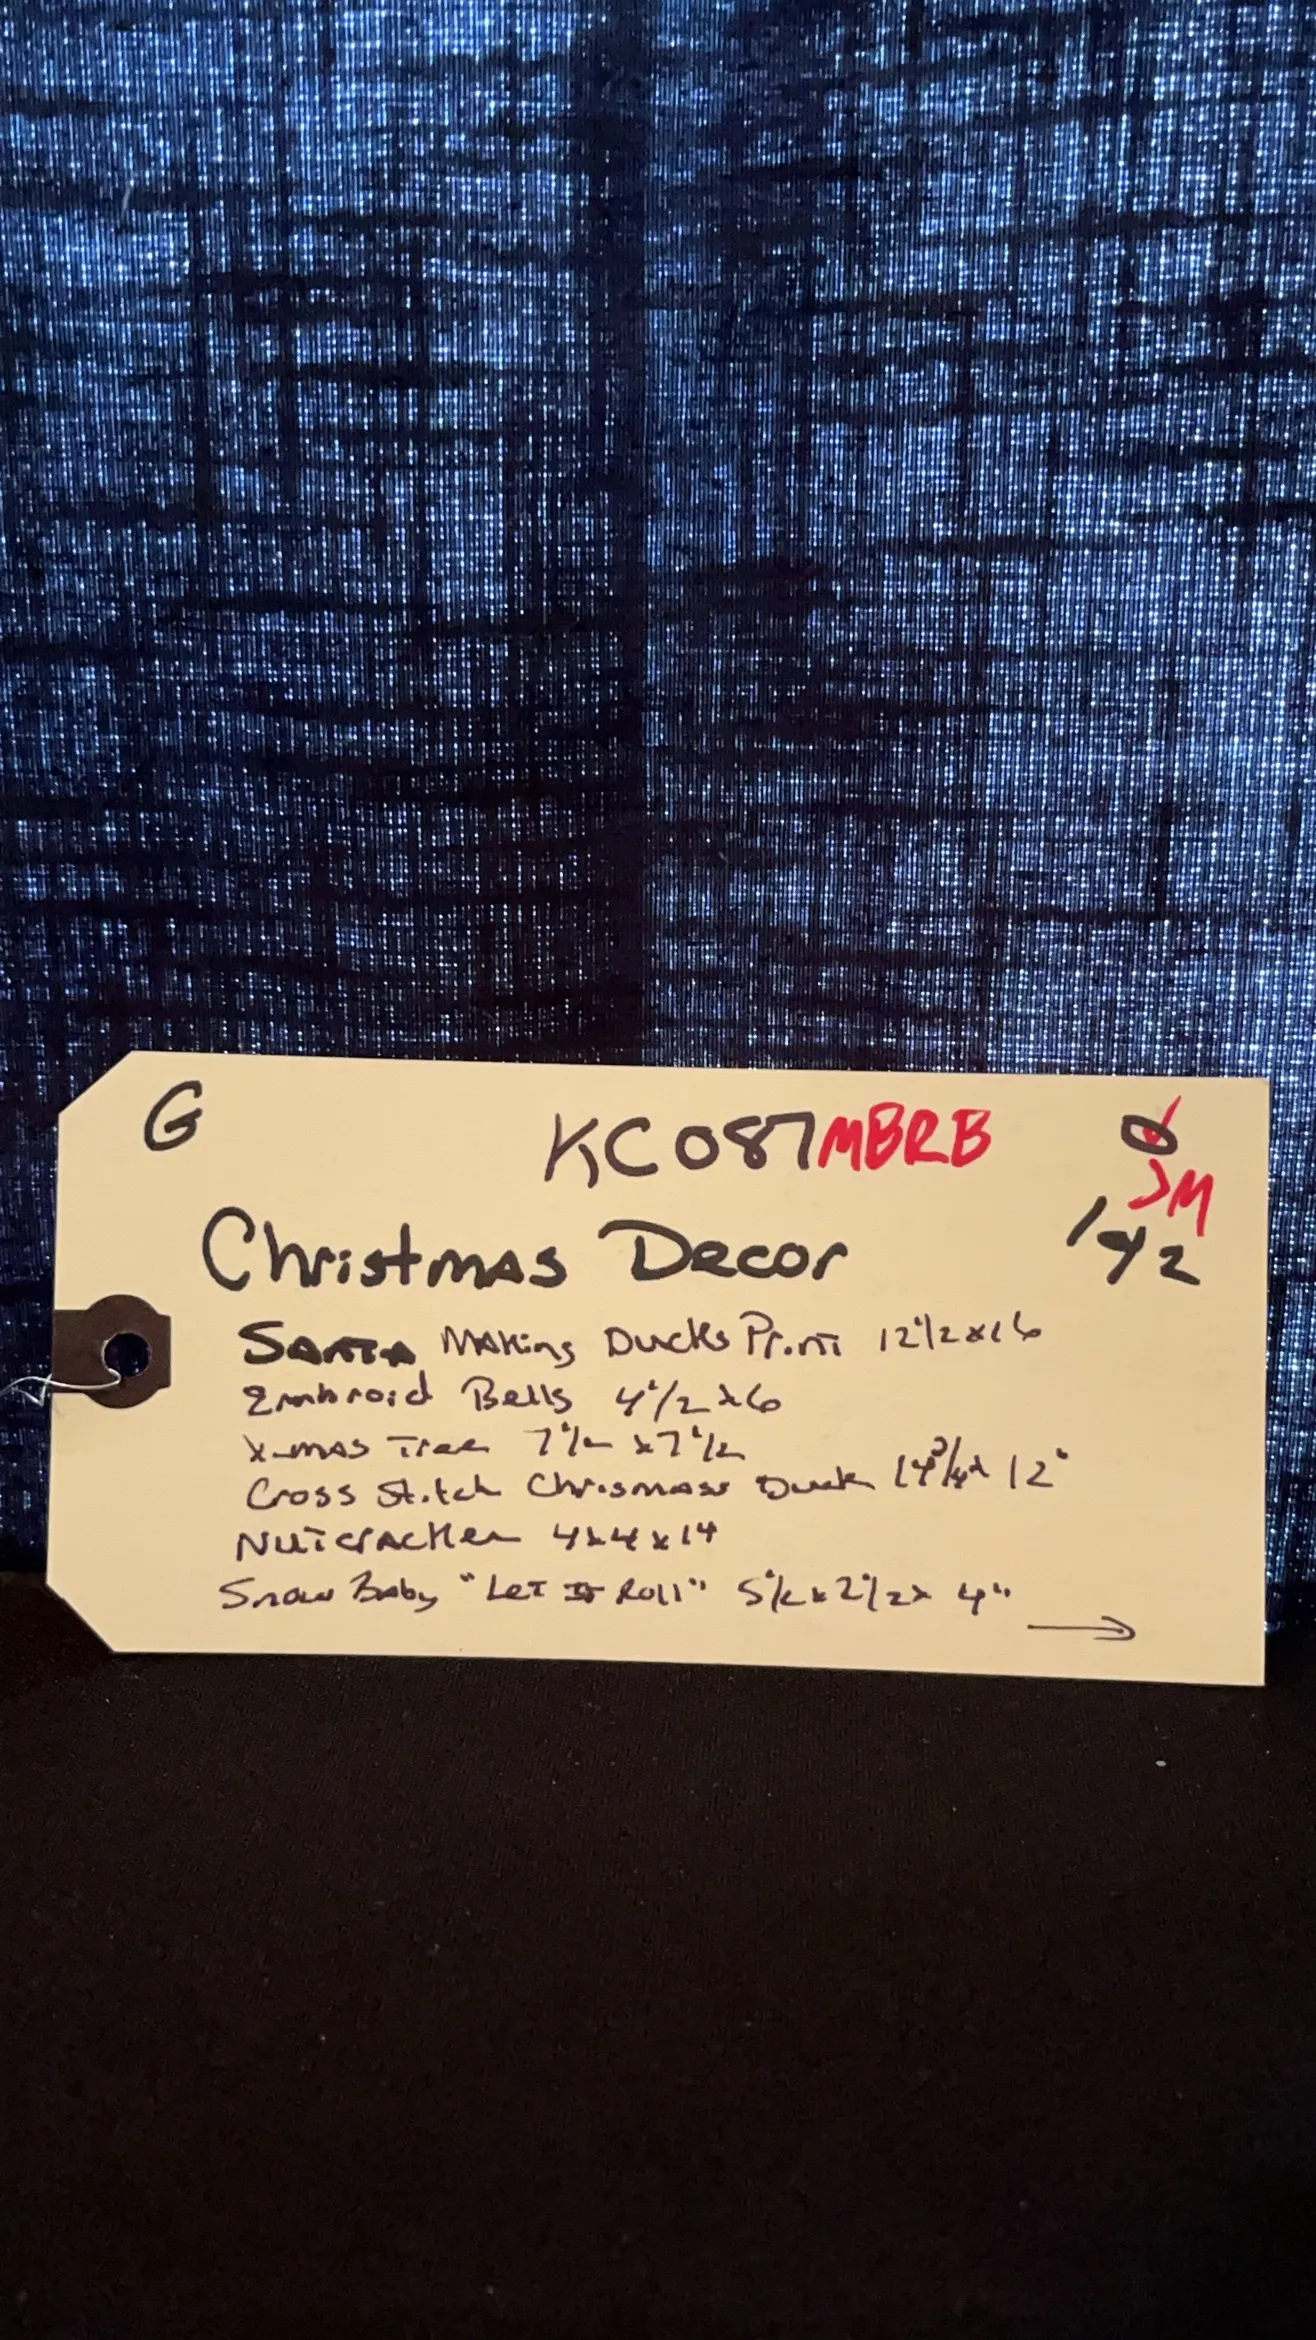 G KC087MBRB 0
JM
Christmas Decor 1 of 2
Santa Making Ducks Print 12 1/2 x 16
Embroid Bells 4 1/2 x 6
X-mas Tree 7 1/2 x 7 1/2
Cross Stitch Chrismass Duck 14 3/4 x 12"
Nutcracker 4x4x14
Snow Baby "Let It Roll" 5 1/2 x 2 1/2 x 4"
→